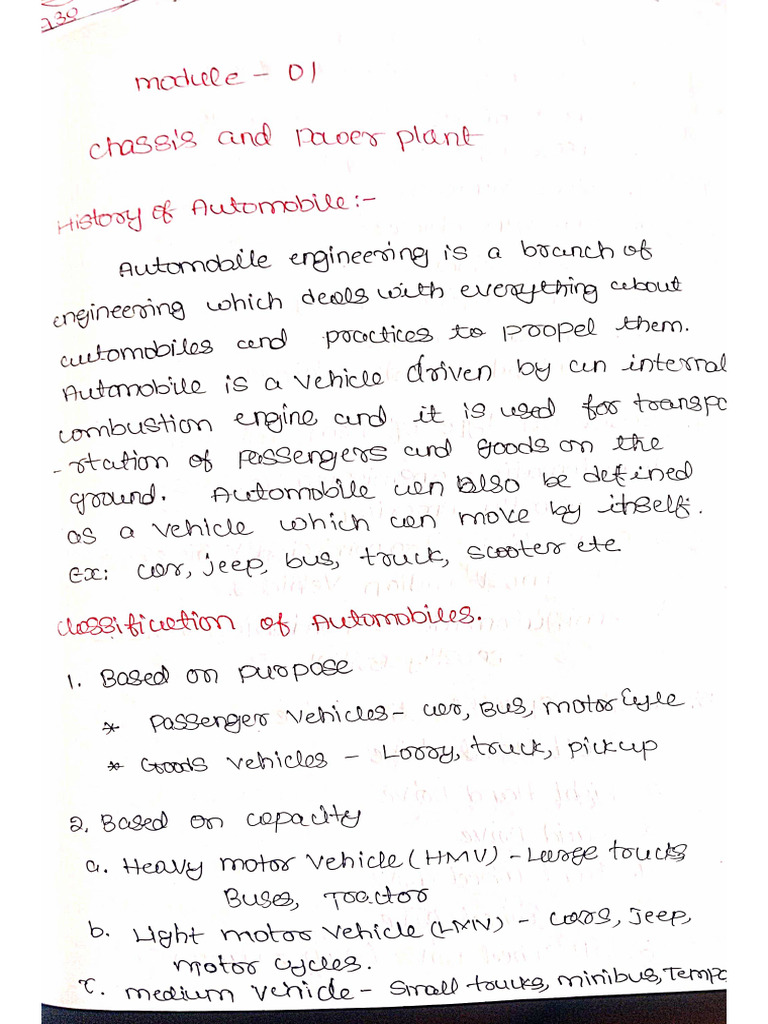 230
module - 01
chassis and Power plant
History of Automobile:-
Automobile engineering is a branch of
engineering which deals with everything about
automobiles and practices to propel them.
Automobile is a vehicle driven by an internal
combustion engine and it is used for transpo
-rtation of passengers and goods on the
ground. Automobile can also be defined
as a vehicle which can move by itself.
Ex: car, jeep, bus, truck, scooter etc
classification of Automobiles.
1. Based on purpose
* Passenger vehicles - car, Bus, motor Cycle
* Goods vehicles - Lorry, truck, pickup
2. Based on capacity
a. Heavy motor vehicle (HMV) - Large trucks
Buses, Tractor
b. Light motor vehicle (LMV) - cars, Jeep,
motor cycles.
c. medium vehicle - Small trucks, minibus, Tempo